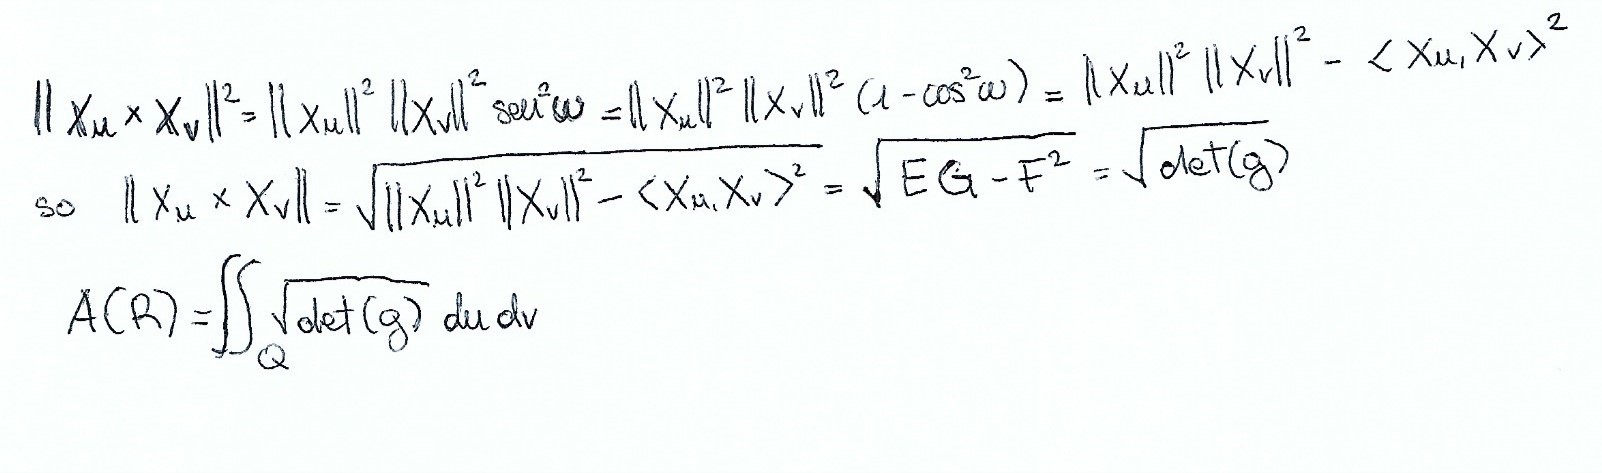 ||Xu × Xv||² = ||Xu||² ||Xv||² sen²ω = ||Xu||² ||Xv||² (1 - cos²ω) = ||Xu||² ||Xv||² - <Xu, Xv>²
so ||Xu × Xv|| = √(||Xu||² ||Xv||² - <Xu, Xv>²) = √(EG - F²) = √det(g)
A(R) = ∬_Q √det(g) du dv